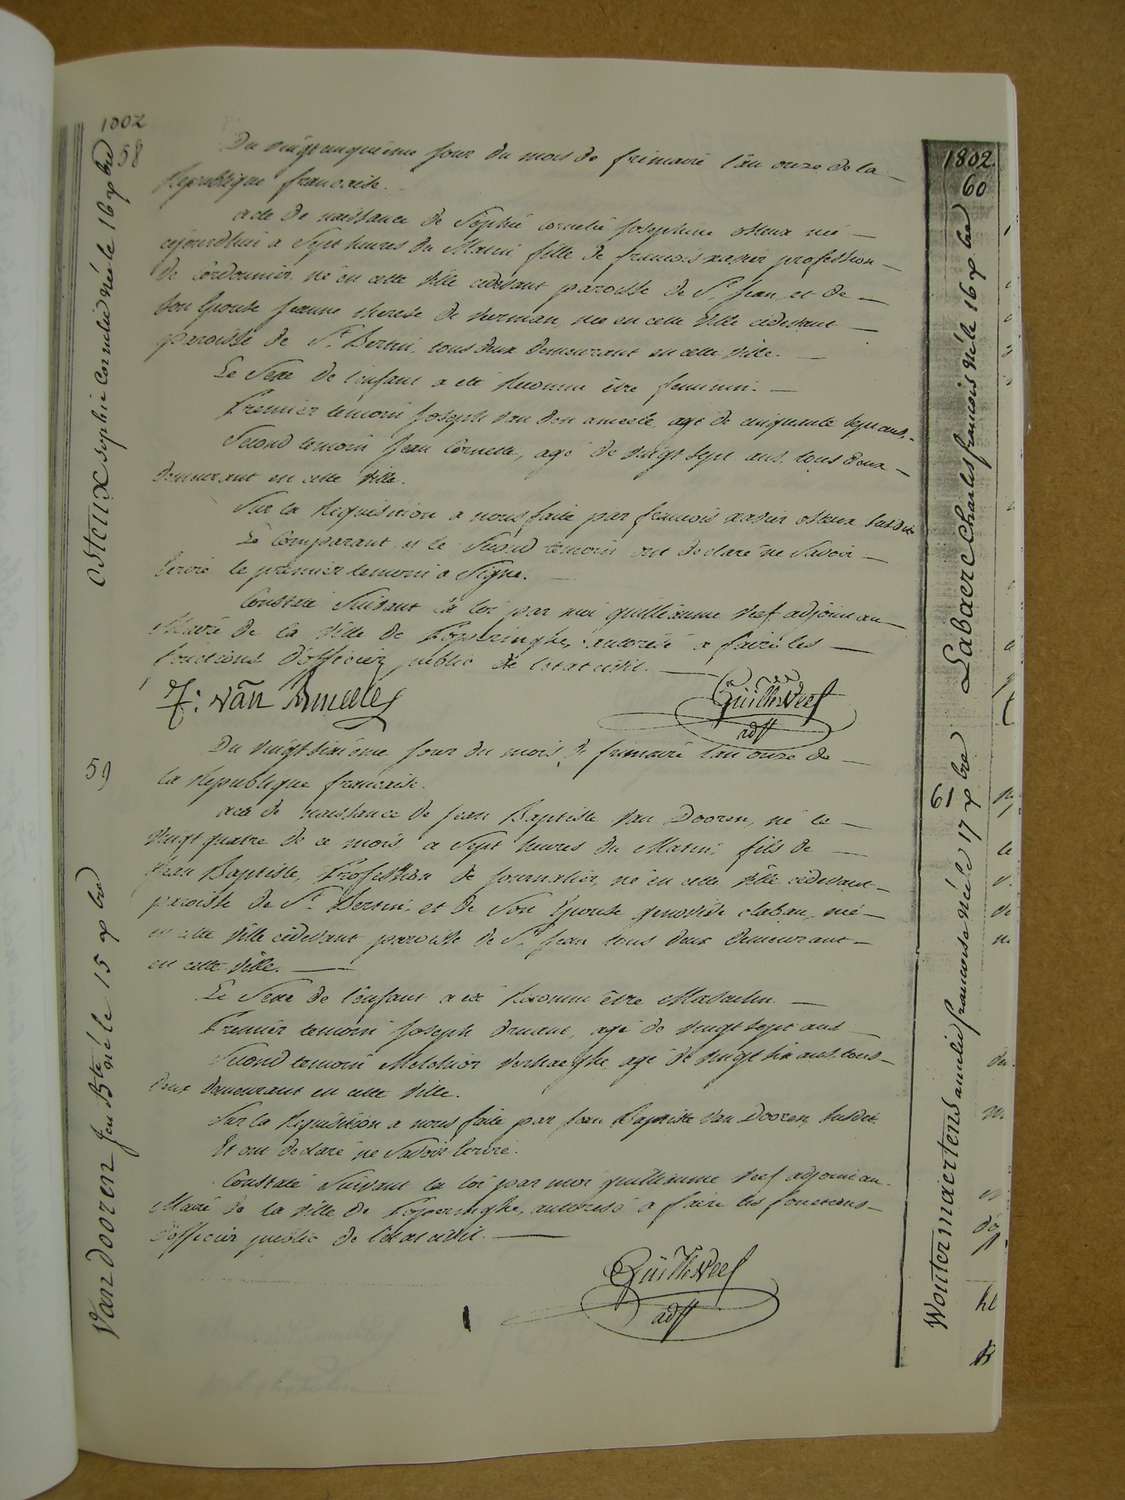 1802
58
Osteux Sophie Cornelie née le 16 xbre
Du vingt cinquième jour du mois de frimaire l'an onze de la
Republique francaise.
acte de naissance de Sophie cornelie Josephine osteux née
cejourdhui a Sept heures du Matin fille de francois xavier profession
de Cordonnier né en cette ville cidevant paroisse de St Jean, et de
Son Epouse Jeanne therese de née en cette ville cidevant
paroisse de St Bertin, tous deux demeurant en cette ville.
Le Sexe de l'enfant a été Reconnu être feminin.
Premier temoin Joseph Van den ameele, agé de cinquante Sept ans.
Second temoin Jean Cornette, agé de vingt Sept ans. tous deux
demeurant en cette ville.
Sur la Requisition a nous faite par francois xavier osteux Susdit
Le Comparant et le Second temoin ont declaré ne Savoir
Ecrire le premier temoin a Signé.
Constaté Suivant la loi par moi guilliaume Veef adjoint au
Maire de la ville de Poperinghe, autorisé a faire les
fonctions d'officier public de l'etat civil.
J: Van Ameele
Guilh Veef
adjt
59
Van dooren Jean Bte né le 15 xbre
Du vingt Sixième jour du mois de frimaire l'an onze de
la Republique francaise.
acte de naissance de Jean Baptiste Van Dooren, né le
vingt quatre de ce mois a Sept heures du Matin, fils de
Jean Baptiste, Profession de Journalier, né en cette ville cidevant
paroisse de St Bertin et de Son Epouse genoviève née
en cette ville cidevant paroisse de St Jean tous deux demeurant
en cette ville.
Le Sexe de l'enfant a été Reconnu être Masculin
Premier temoin Joseph agé de vingt Sept ans
Second temoin Melchior Verhaeghe agé de vingt Six ans tous
deux demeurant en cette ville.
Sur la Requisition a nous faite par Jean Baptiste Van Dooren, Susdit
Et ont declaré ne Savoir Ecrire.
Constaté Suivant la loi par moi guilliaume Veef adjoint au
Maire de la ville de Poperinghe, autorisé a faire les fonctions
d'officier public de l'etat civil.
Guilh Veef
adjt
1802
60
Labaere Charles francois né le 16 xbre
61
Woutermaertens amelie francoise née le 17 xbre